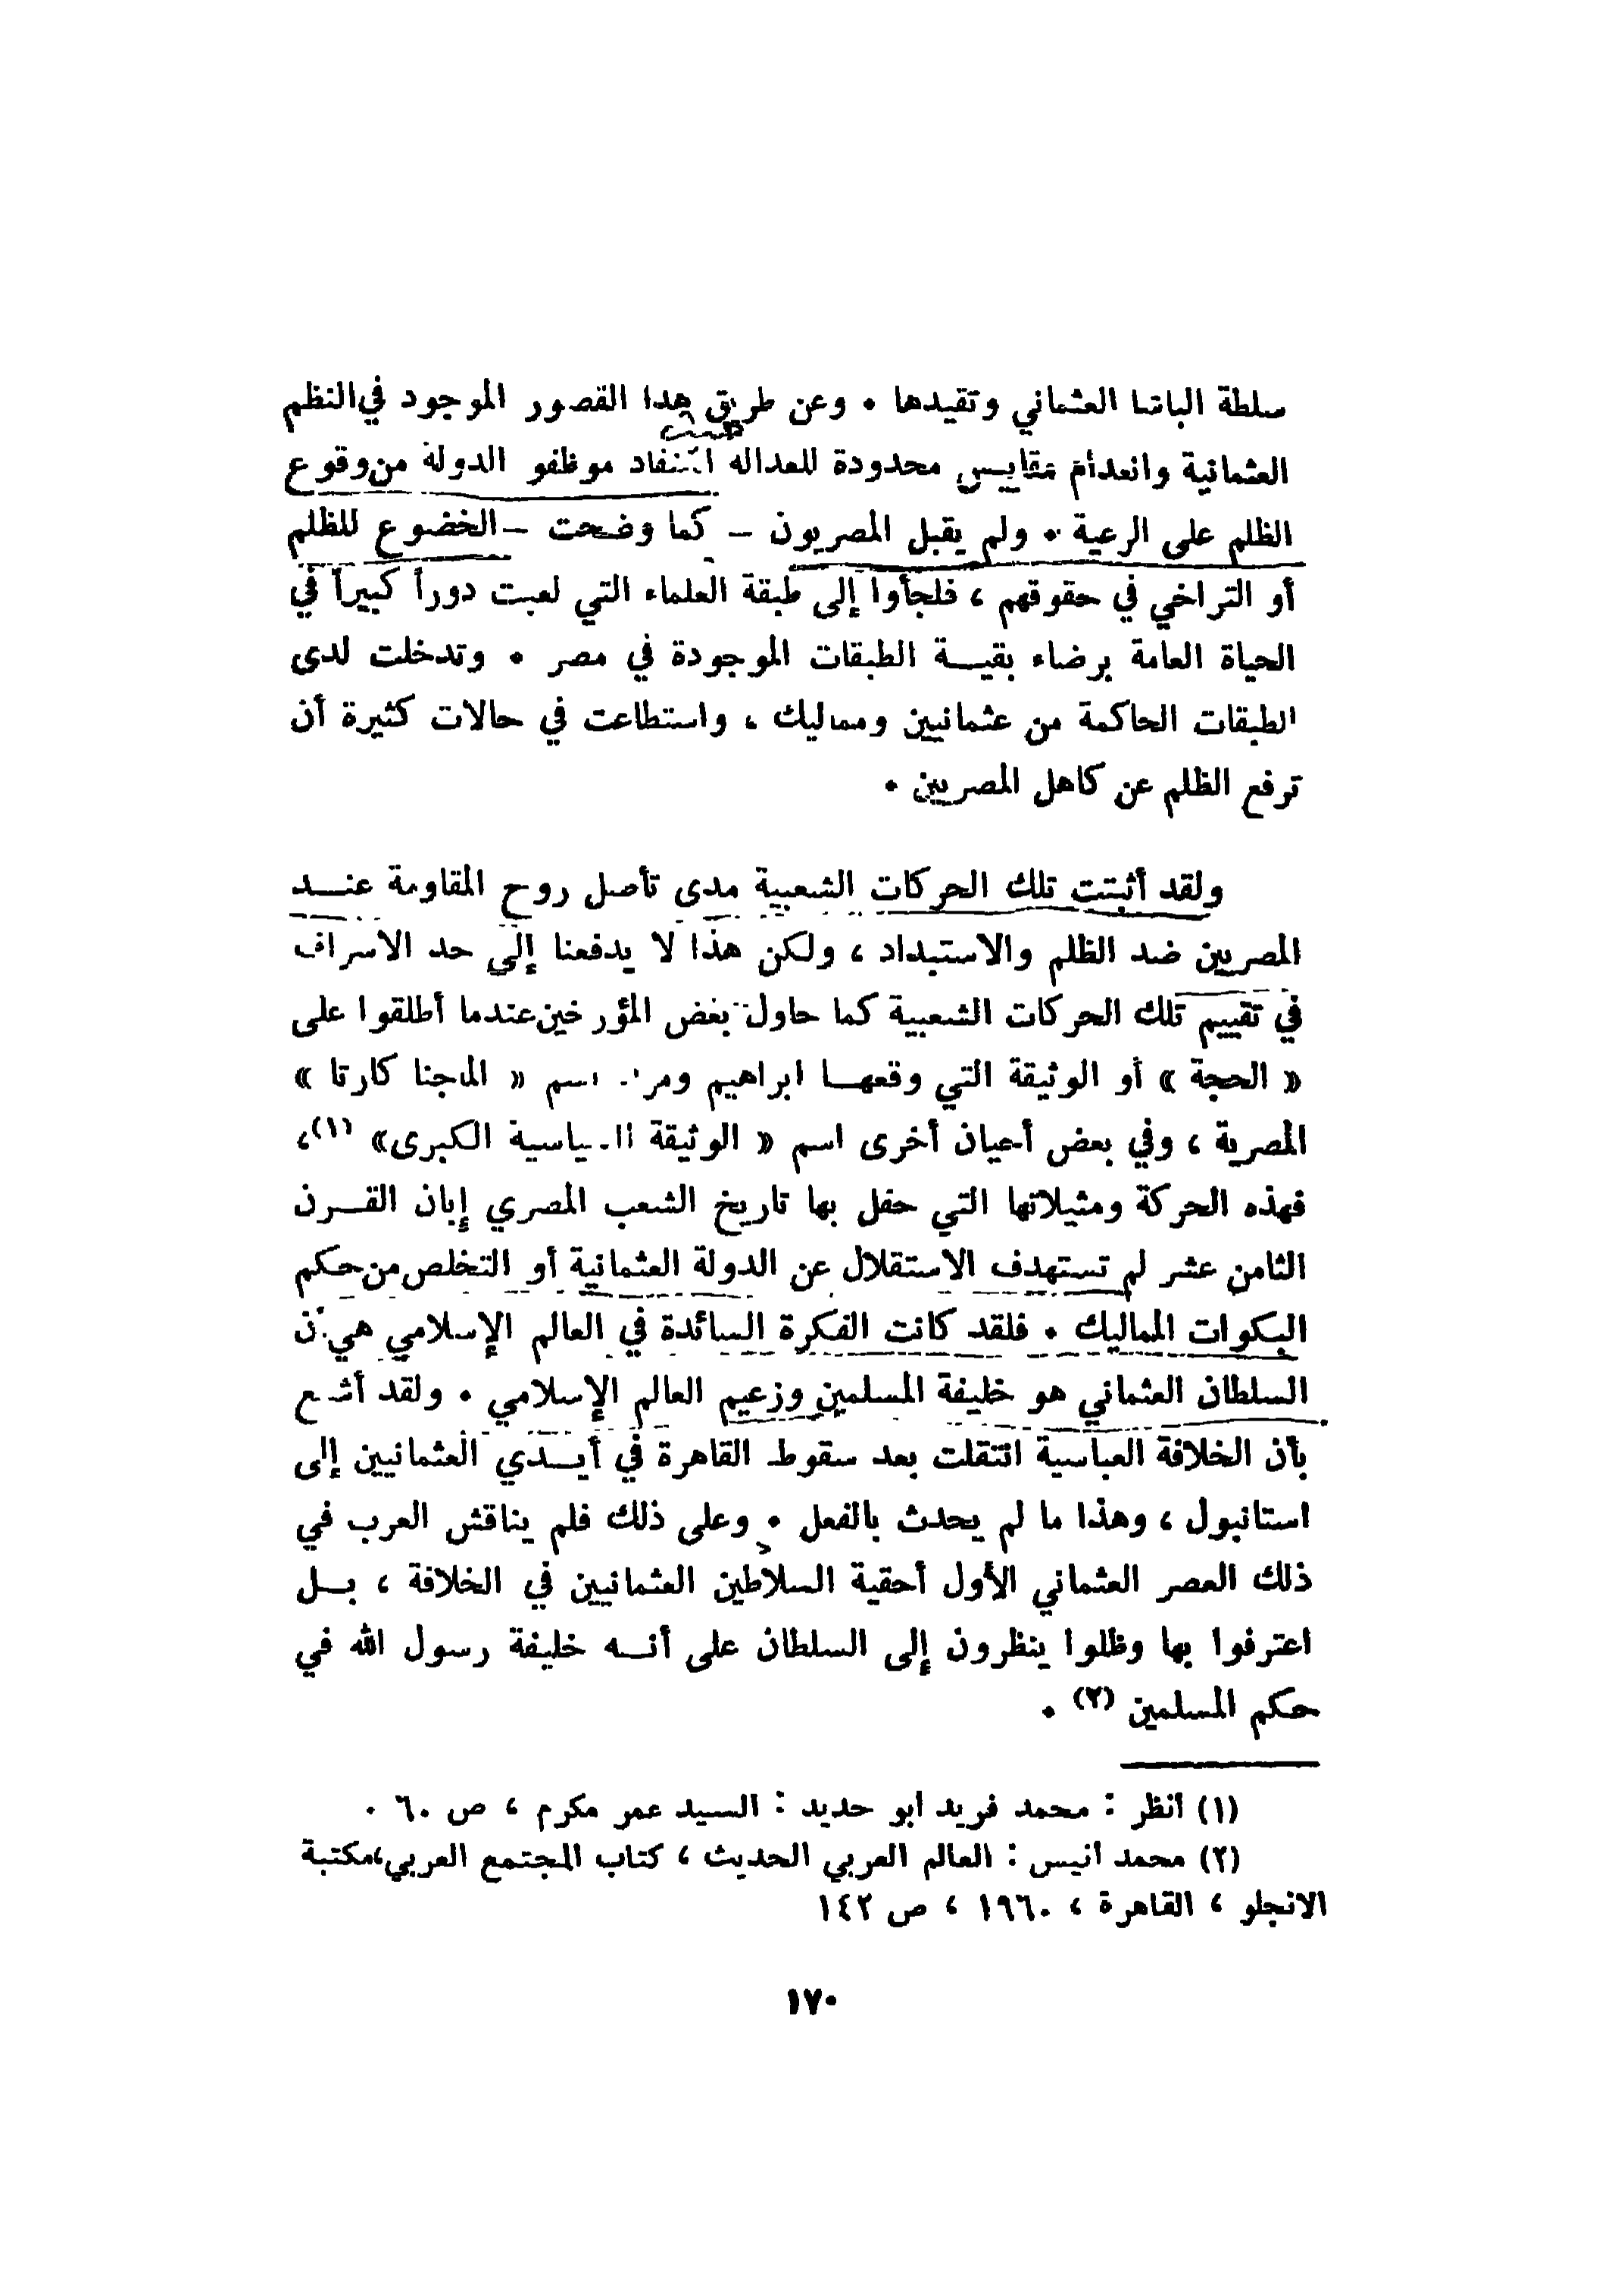 سلطة الباشا العثماني وتقيدها . وعن طريق هذا القصور الموجود في النظم
العثمانية وانعدام مقاييس محدودة للعدالة استفاد موظفو الدولة من وقوع
الظلم على الرعية . ولم يقبل المصريون – كما وضحت – الخضوع للظلم
أو التراخي في حقوقهم ، فلجأوا إلى طبقة العلماء التي لعبت دوراً كبيراً في
الحياة العامة برضاء بقيـــة الطبقات الموجودة في مصر . وتدخلت لدى
الطبقات الحاكمة من عثمانيين ومماليك ، واستطاعت في حالات كثيرة أن
ترفع الظلم عن كاهل المصريين .
ولقد أثبتت تلك الحركات الشعبية مدى تأصل روح المقاومة عنـــد
المصريين ضد الظلم والاستبداد ، ولكن هذا لا يدفعنا إلى حد الاسراف
في تقييم تلك الحركات الشعبية كما حاول بعض المؤرخين عندما أطلقوا على
« الحجة » أو الوثيقة التي وقعهـــا ابراهيم اسم « الماجنا كارتا »
المصرية ، وفي بعض أحيان أخرى اسم « الوثيقة السياسية الكبرى» (١)،
فهذه الحركة ومثيلاتها التي حفل بها تاريخ الشعب المصري إبان القـــرن
الثامن عشر لم تستهدف الاستقلال عن الدولة العثمانية أو التخلص من حكم
البكوات المماليك . فلقد كانت الفكرة السائدة في العالم الإسلامي هي أن
السلطان العثماني هو خليفة المسلمين وزعيم العالم الإسلامي . ولقد أشيع
بأن الخلافة العباسية انتقلت بعد سقوط القاهرة في أيـــدي العثمانيين إلى
استانبول ، وهذا ما لم يحدث بالفعل . وعلى ذلك فلم يناقش العرب في
ذلك العصر العثماني الأول أحقية السلاطين العثمانيين في الخلافة ، بـــل
اعترفوا بها وظلوا ينظرون إلى السلطان على أنـــه خليفة رسول الله في
حكم المسلمين (٢) .
(١) أنظر : محمد فريد أبو حديد : السيد عمر مكرم ، ص ٦٠ .
(٢) محمد أنيس : العالم العربي الحديث ، كتاب المجتمع العربي، مكتبة
الانجلو ، القاهرة ، ١٩٦٠ ، ص ١٤٢
١٧٠